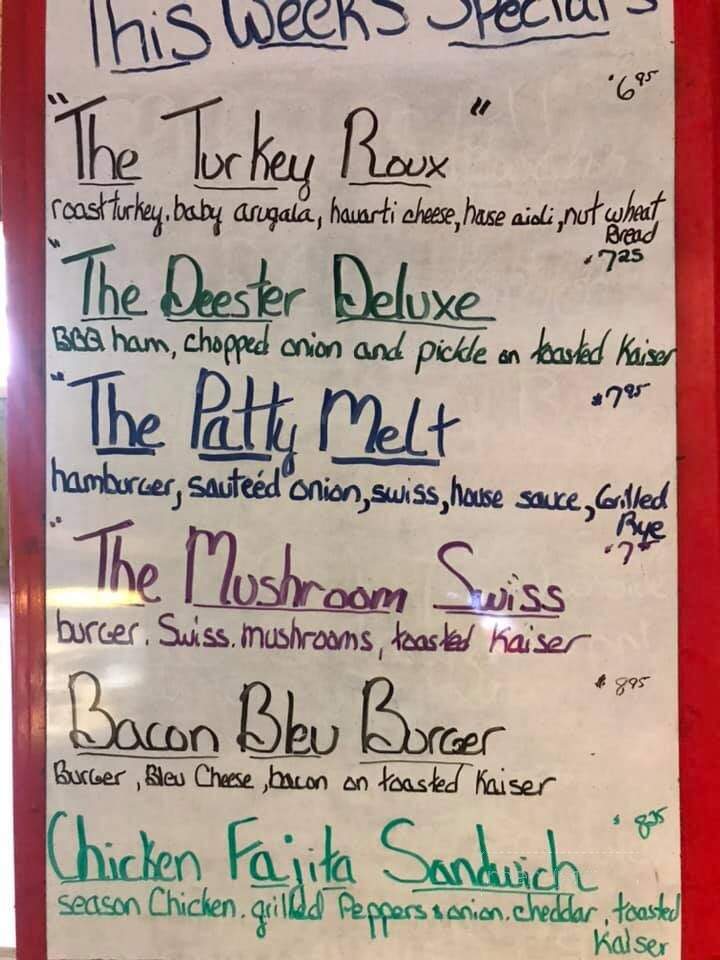 This Weeks Special's
$6.95
"The Turkey Roux"
roast turkey, baby arugala, havarti cheese, house aioli, nut wheat
Bread
$7.25
"The Deester Deluxe
BBQ ham, chopped onion and pickle on toasted Kaiser
$7.95
"The Patty Melt
hamburger, sauteéd onion, swiss, house sauce, Grilled
Rye
"The Mushroom Swiss
burger. Swiss. mushrooms, toasted Kaiser
$8.95
Bacon Bleu Burger
Burger, Bleu Cheese, bacon on toasted Kaiser
Chicken Fajita Sandwich
season Chicken. grilled Peppers & onion. cheddar, toasted
Kaiser